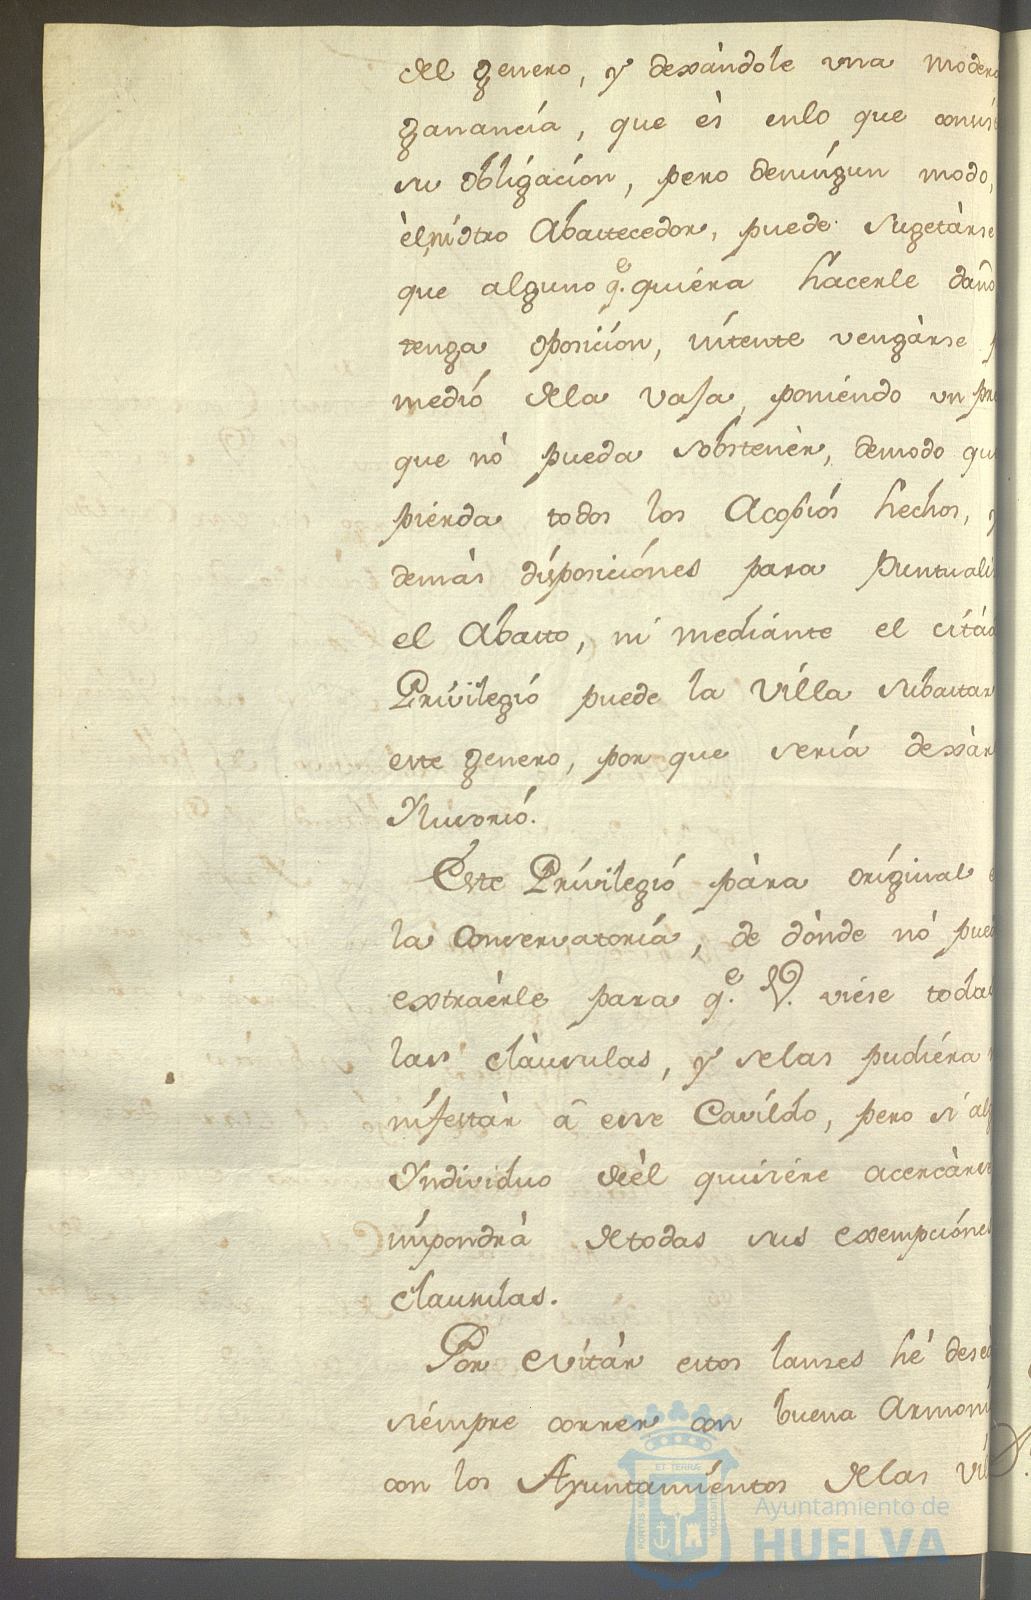 del genero, y dexàndole una modera
ganancía, que ès enlo que consis
su obligacíon, pero deningun modo,
èl, ni otro Abastecedor, puede sugetàrse
que alguno q.e quiéra hacerle daño
tenga oposicíon, intente vengàrse p
medió dela vaja, poniéndo un pre
que nò pueda sobstenèr, demodo que
piérda todos los Acopiós hechos, y
demàs dísposiciónes para Puntuali
el Abasto, ni mediánte el citád
Privilegió puede la Villa subastar
este genero, por que sería dexàr
Yluсorió.
Éste Privilegió pàra original e
la Conservatoría, de dònde nó pued
extraèrle para q.e V. viése todas
las clàusulas, y selas pudiéra
nifestàr à ese Cavíldo, pero si alg
Yndividuo deèl quisiére acercàrse
impondrà detodas sus exempciónes
clausulas.
Por evitàr estos lanses hé desea
siémpre correr con buena Armoni
con los Ayuntamiéntos delas Vil
ET TERRÆ
Ayuntamiento de
HUELVA